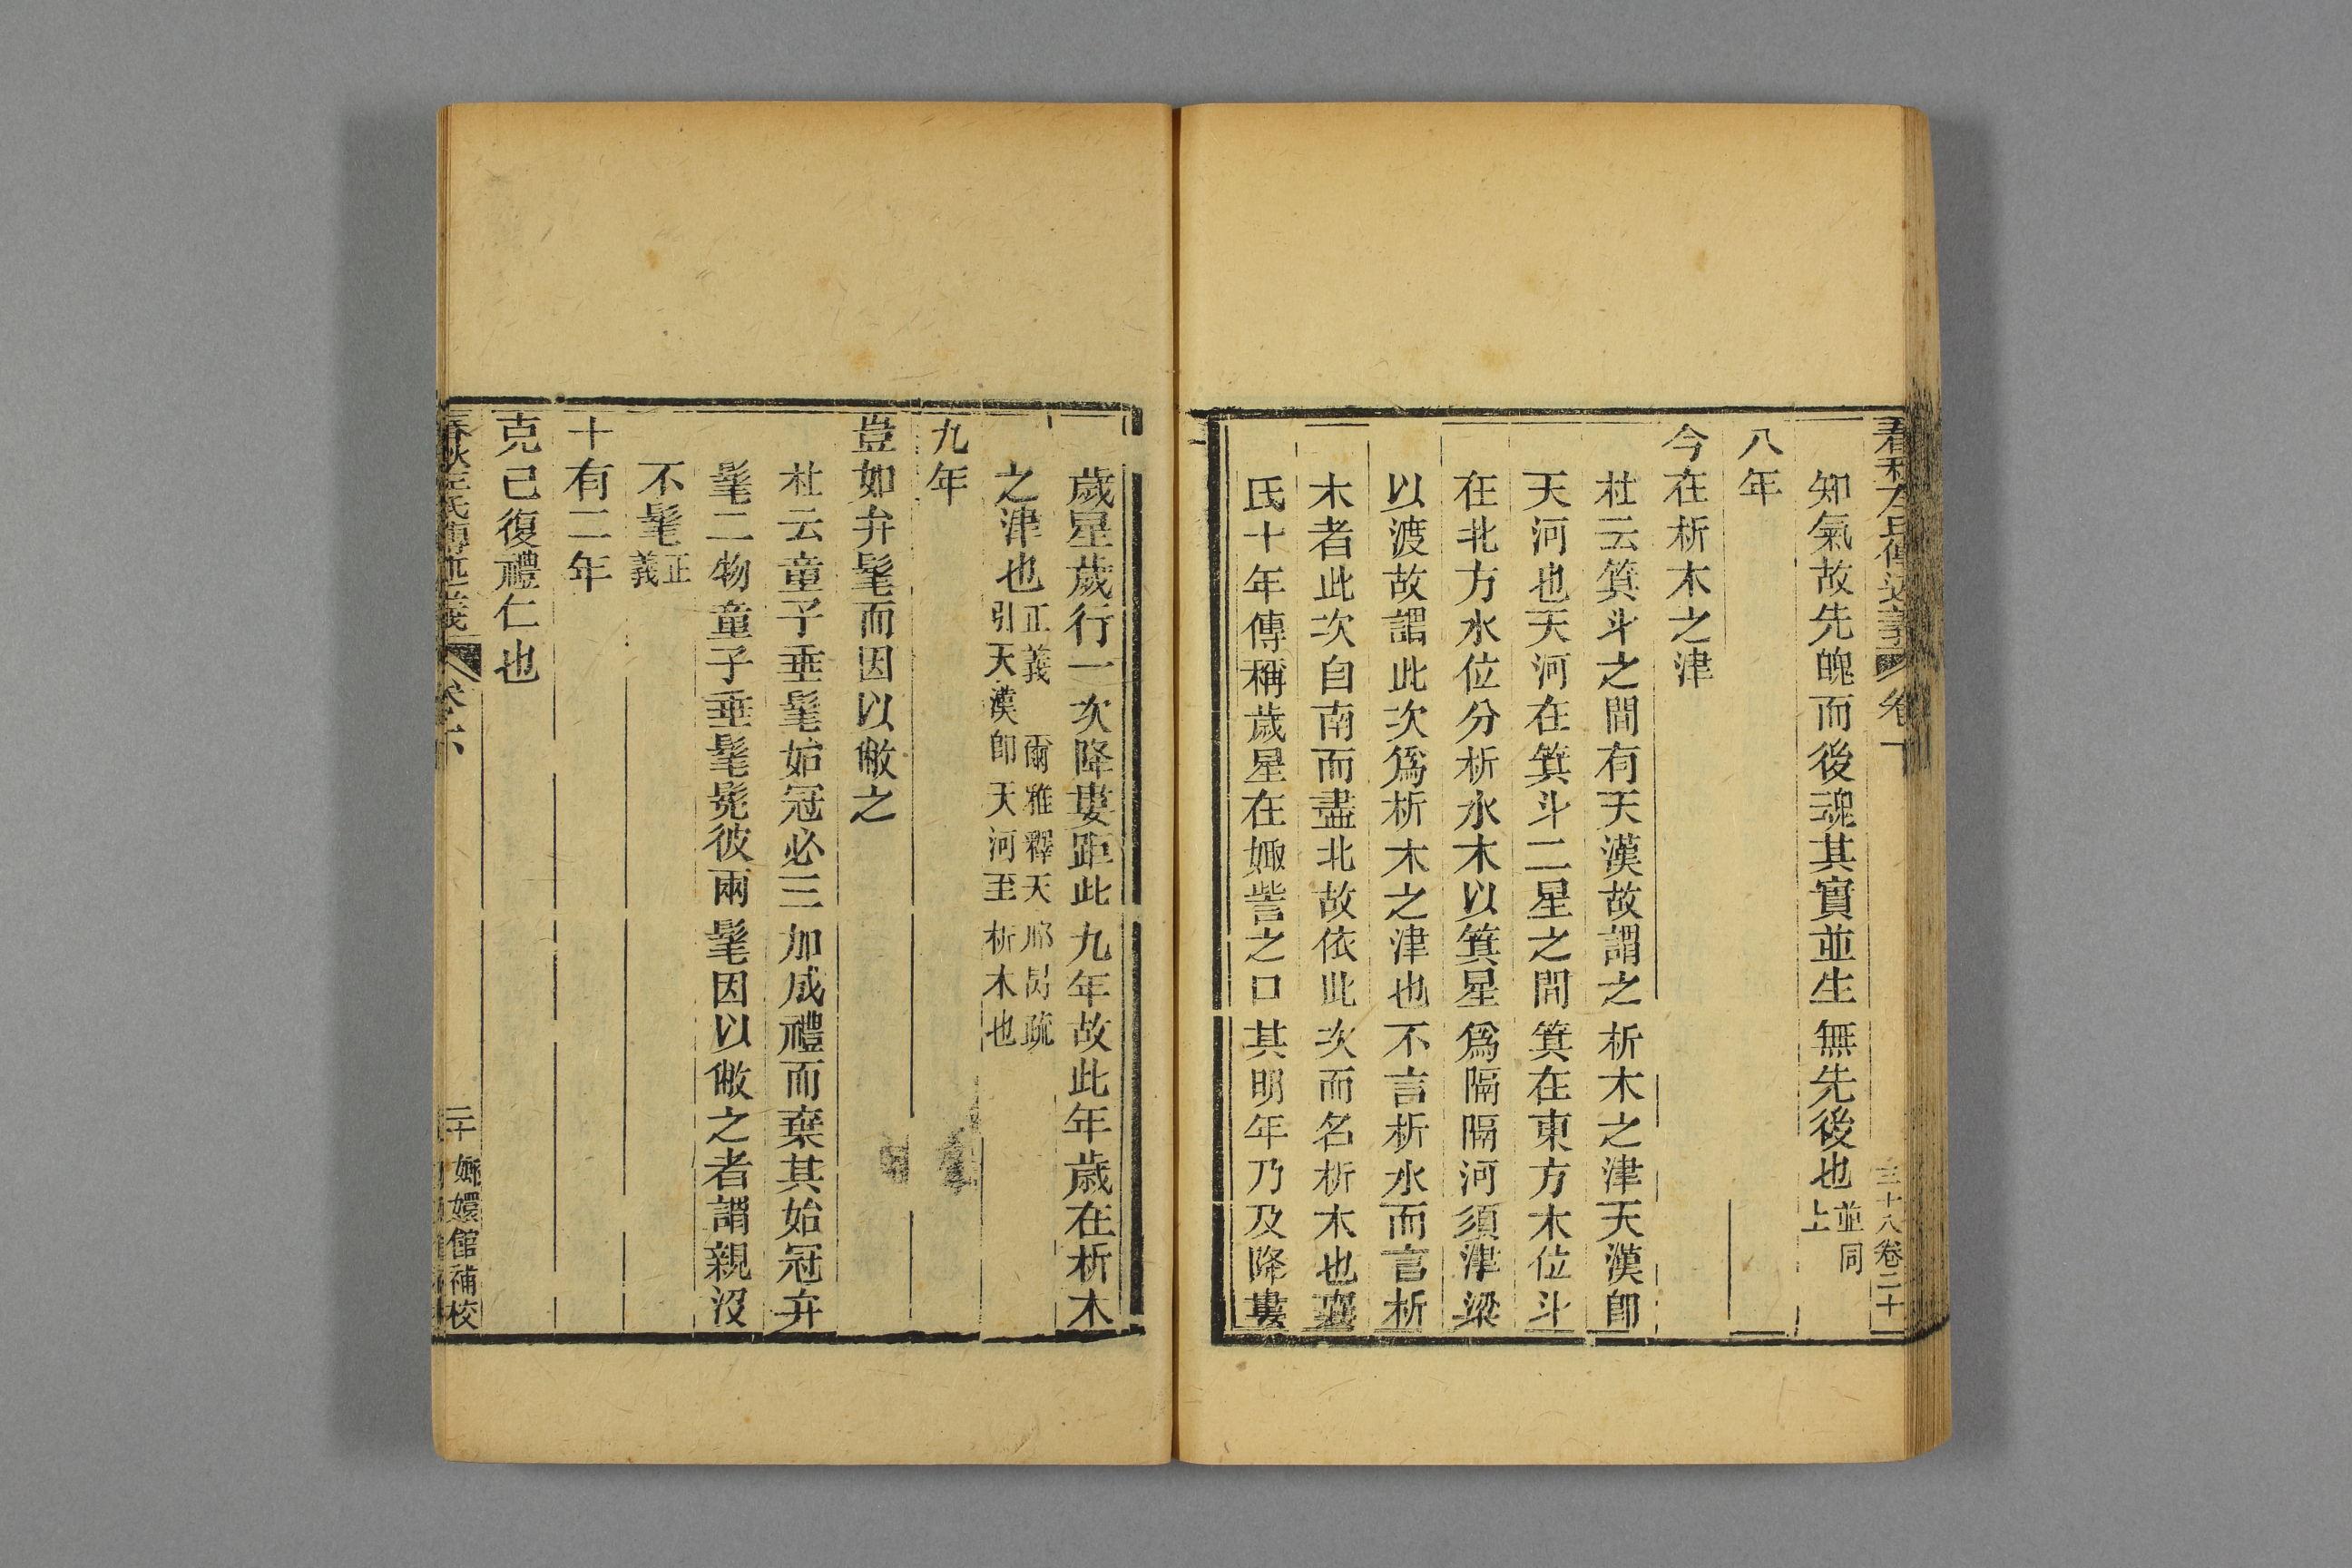 春秋左氏傳述義 卷下 三十八卷二十
知氣故先魄而後魂其實並生無先後也並同上
八年
今在析木之津
杜云箕斗之間有天漢故謂之析木之津天漢卽
天河也天河在箕斗二星之間箕在東方木位斗
在北方水位分析水木以箕星爲隔隔河須津梁
以渡故謂此次爲析木之津也不言析水而言析
木者此次自南而盡北故依此次而名析木也襄
氏十年傳稱歲星在娵訾之口其明年乃及降婁
歲星歲行一次降婁距此九年故此年歲在析木
之津也正義 爾雅釋天邢昺疏引天漢卽天河至析木也
九年
豈如弁髦而因以敝之
杜云童子垂髦始冠必三加成禮而棄其始冠弁
髦二物童子垂髦髡彼兩髦因以敝之者謂親沒
不髦正義
十有二年
克己復禮仁也
春秋左氏傳述義 卷下 二十 嫏嬛館補校